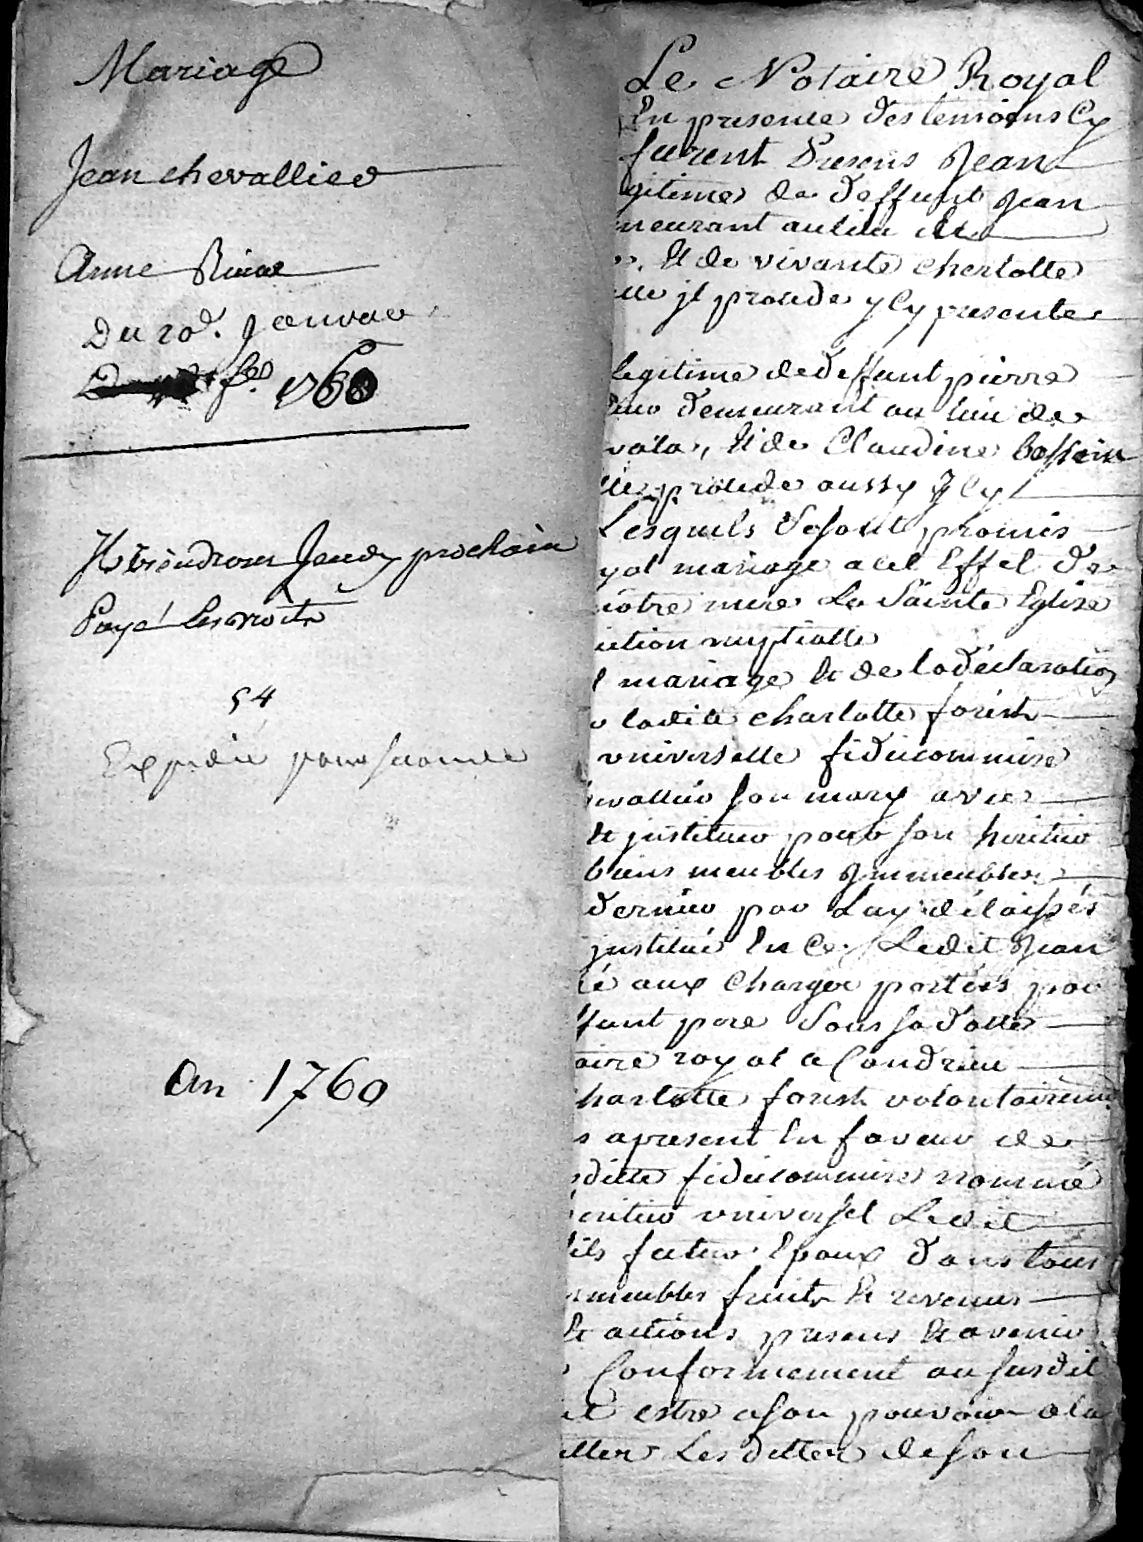 Mariage
Jean chevallier
Anne
Du 20e. Janvier
1760
Ils viendront Jeudy prochain
Payé Les droits
54
Expedié
an 1760
Le Notaire Royal
En presence des temoins Cy
furent Presens Jean
gitime de deffunt Jean
meurant au lieu de
, Et de vivante Charlotte
elle jl procede jCy presente
legitime de deffunt pierre
demeurant au lieu de
, Et de Claudine
procede aussy jCy
Lesquels Se sont promis
yal mariage a cet Effet de
notre mere La Sainte Eglise
iction nuptialle
l mariage Et de la declaration
ladite charlotte forest
universelle fideicommise
evallier son mary avec
Et justituer pour son heritier
biens meubles jmmeubles
dernier par Luy délaissés
justitué En Ce, Ledit Jean
té aux Charges portées par
ffunt pere Sous sa datte
aire royal a Condrieu
harlotte forest volontairement
s apresent En faveur de
ditte fideicommise nommé
eritier universel Ledit
fils futur Epoux dans tous
meubles fruits Et revenus
Et actions presens Et avenir
Conformement au susdit
estre a son pouvoir a la
Les dettes de son